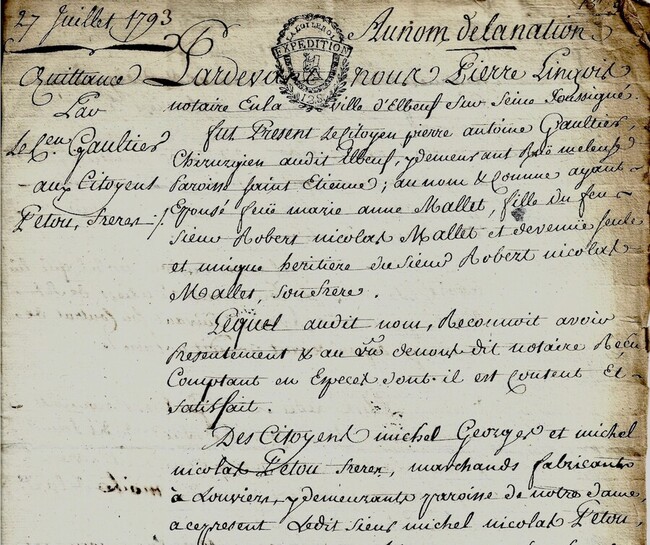 27 Juillet 1793
Au nom de la nation
EXPEDITION
Quittance
Par
Le Cen Gaultier
aux Citoyens
Petou, freres ./.
Pardevant nous Pierre Lingois
notaire En la ville d'Elbeuf sur Seine soussigné.
fut Present Le Citoyen pierre antoine Gaultier,
Chirurgien audit Elbeuf, y demeurant Ruë meleuse
Paroisse Saint Etienne; au nom & Comme ayant
Epousé feüe marie anne Mallet, fille du feu
sieur Robert nicolas Mallet et devenue seule
et unique heritiere du sieur Robert nicolas
Mallet, son frère.
Lequel audit nom, Reconnoit avoir
Presentement & au vu de nous dit notaire Reçu
Comptant en Especes dont il est Content Et
satisfait.
Des Citoyens michel Georges et michel
nicolas Petou freres, marchands fabricants
à Louviers, y demeurants paroisse de notre dame,
a ce present Ledit Sieur michel nicolas Petou,